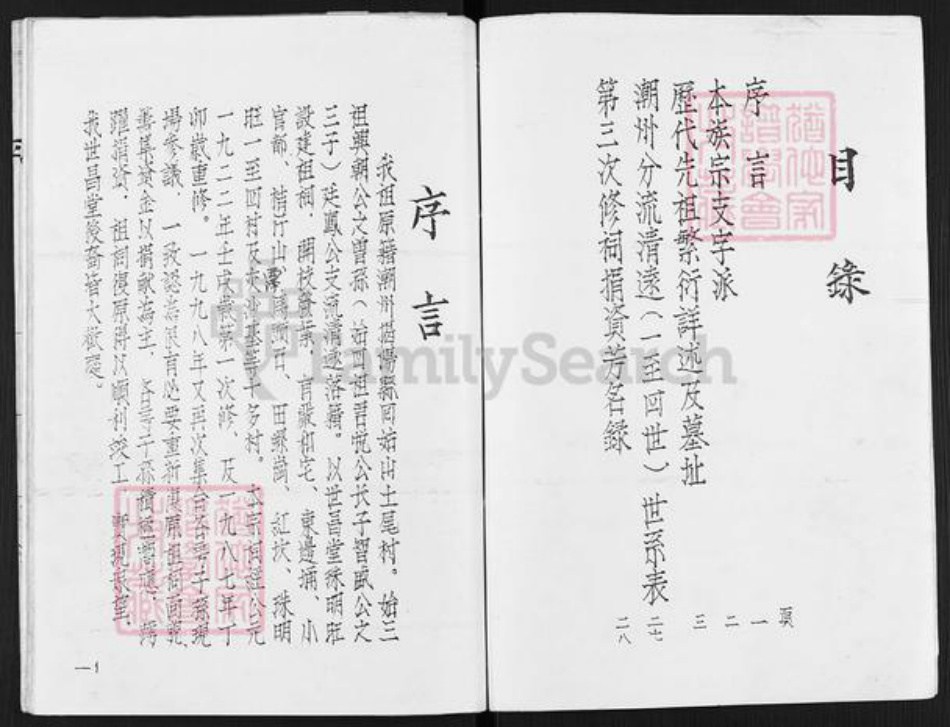 目錄
頁
序言 一
本族宗支字派 二
歷代先祖繁衍詳述及墓址 三
潮州分流清遠（一至四世）世系表 二七
第三次修祠捐資芳名錄 二八
序言
我祖原籍潮州揭陽縣 土尾村。始三
祖興朝公之曾孫（始四祖君悅公长子智 公之
三子）廷鳳公支流清遠落籍。以世昌堂 明旺
設建祖祠，開枝發葉， 和宅、東邊埔、小
官郁、桔 山、 田 崗、紅坎、珠明
旺一至四村及 等十多村。本宗祠經公元
一九二二年壬戌歲第一次修、及一九八七年丁
卯歲重修。一九九八年又再次集合各房子孫現
場參議，一致認為很有必要重新復原祖祠面貌、
善集資金以捐献為主，各房子孫積極响應、踴
躍捐資，祖祠復原得以順利竣工，實現
我世昌堂後裔皆大歡喜。
一1
FamilySearch